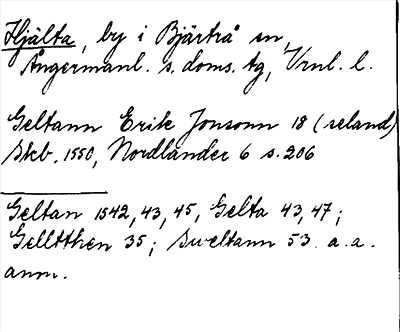 Hjälta, by i Bjärtrå sn,
Ångermanl. s. doms. tg, Vrnl. l.
Geltann Erik Jonsonn 18 (seland)
Skb. 1550, Nordlander 6 s. 206
Geltan 1542, 43, 45, Gelta 43, 47;
Gelltthen 35; Sweltann 53 a.a.
anm.